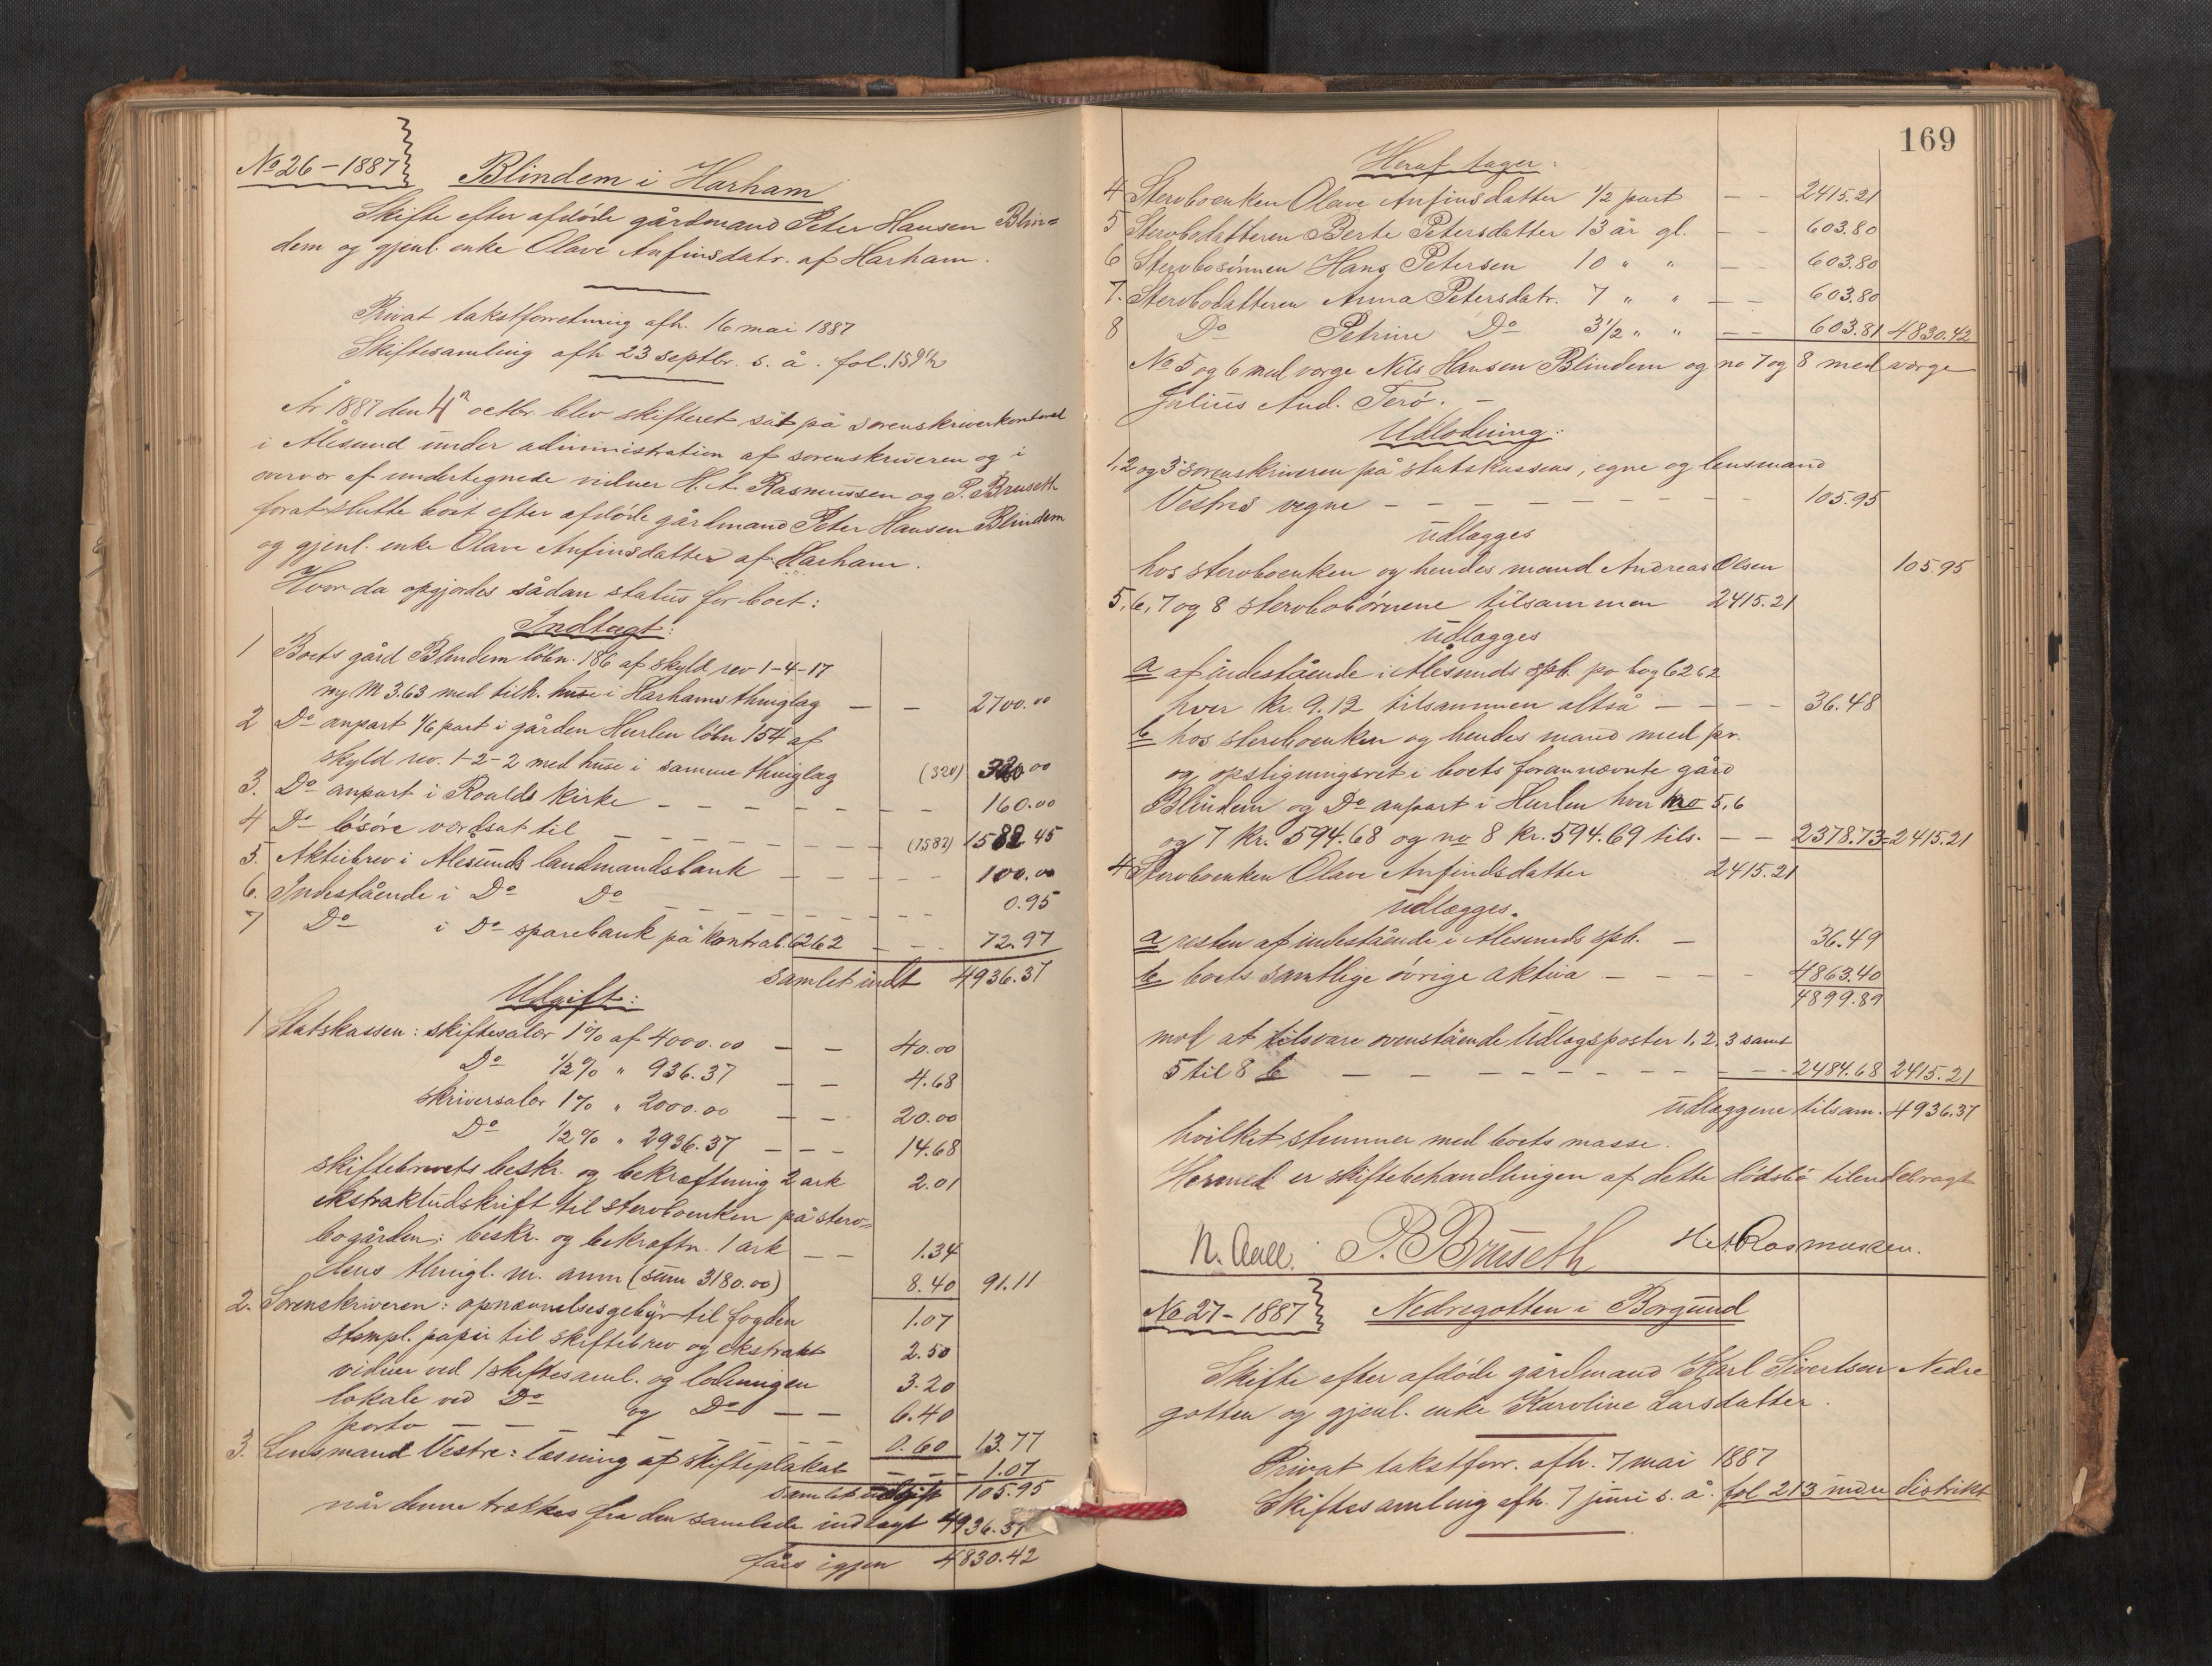 No 26 – 1887
Blindem i Harham
Skifte efter afdøde gårdmand Peter Hansen Blin=
dem og gjenl. enke Olave Anfinsdatr. af Harham.
Privat takstforretning afh. 16 mai 1887
Skiftesamling afh 23 septbr. s. å. fol. 159 1/2
År 1887 den 4n octbr. blev skifteret sat på sorenskriverkontoret
i Ålesund under administration af sorenskriveren og i
overvær af undertegnede vidner H. A. Rasmussen og P. Bruseth
forat slutte boet efter afdøde gårdmand Peter Hansen Blindem
og gjenl. enke Olave Anfinsdatter af Harham.
Hvor da opgjordes sådan status for boet:
Indtægt:
1 Boets gård Blindem løbn. 186 af skyld rev 1-4-17
ny M 3.63 med tilh. huse i Harhams thinglag — — 2700.00
2 Do anpart 1/6 part i gården Hurlen løbn 154 af
skyld rev. 1-2-2 med huse i samme thinglag (320) 320 00
3. Do anpart i Roalds kirke — — — — — — 160.00
4 Do løsøre værdsat til — — — — — (1582) 1582 45
5. Aktiebrev i Ålesunds landmandsbank — — — — — 100.00
6. Indestående i Do Do — — — — — — — — 0.95
7 Do i Do sparebank på kontrab 6262 — — — 72.97
samlet indt 4936.37
Udgift:
1 Statskassen: skiftesalær 1% af 4000.00 — — 40.00
Do 1/2% " 936.37 — — 4.68
skriversalær 1% " 2000.00 — — 20.00
Do 1/2% " 2936.37 — — — 14.68
skiftebrevets beskr. og bekræftning 2 ark 2.01
ekstraktudskrift til stervboenken på sterv=
bogården: beskr. og bekræftn. 1 ark — — 1.34
dens thingl. m. anm (sum 3180.00) 8.40 91.11
2. Sorenskriveren: opnævnelsesgebyr til fogden 1.07
stempl. papir til skiftebrev og ekstrakt 2.50
vidner ved 1 skiftesaml. og lodningen 3.20
lokale ved Do og Do — — 6.40
porto — — — — — — 0.60 13.77
3. Lensmand Vestre: læsning af skifteplakat — — — 1.07
samlet udgift 105.95
når denne trækkes fra den samlede indtægt 4936.37
fåes igjen 4830.42
169
Heraf tager:
4 Stervboenken Olave Anfinsdatter 1/2 part — — 2415.21
5 Stervbodatteren Berte Petersdatter 13 år gl. — — 603.80
6 Stervbosønnen Hans Petersen 10 " " — — 603.80
7. Stervbodatteren Anna Petersdatr. 7 " " — — 603.80
8 Do Petrine Do 3 1/2 " " — — 603.81 4830.42
No 5 og 6 med værge Nils Hansen Blindem og no 7 og 8 med værge
Julius And. Terø. —
Udlodning:
1, 2 og 3 sorenskriveren på statskassens, egne og lensmand
Vestres vegne — — — — — — — 105.95
udlægges
hos stervboenken og hendes mand Andreas Olsen 105 95
5, 6, 7 og 8 stervbobørnene tilsammen 2415.21
udlægges
a af indestående i Ålesunds spb. på bog 6262
hver kr. 9.12 tilsammen altså — — — — 36.48
b hos stervboenken og hendes mand med pr.
og opsligningsret i boets forannævnte gård
Blindem og Do anpart i Hurlen hver no 5, 6
og 7 kr. 594.68 og no 8 kr. 594.69 tils. — — 2378.73 = 2415.21
4 Stervboenken Olave Anfindsdatter 2415.21
udlægges.
a resten af indestående i Ålesunds spb. — 36.49
b. boets samtlige øvrige aktiva — — — — 4863.40
4899.89
mod at tilsvare ovenstående Udlægsposter 1, 2, 3 samt
5 til 8 b — — — — — — — — — — 2484.68 2415.21
udlæggene tilsam. 4936.37
hvilket stemmer med boets masse.
Hermed er skiftebehandlingen af dette dødsbo tilendebragt
N. Aall. P. Bruseth H. A. Rasmussen.
No 27 – 1887
Nedregotten i Borgund
Skifte efter afdøde gårdmand Karl Sivertsen Nedre
gotten og gjenl. enke Karoline Larsdatter.
Privat takstforr. afh. 7 mai 1887
Skiftesamling afh. 7 juni s. å. fol 213 indre distrikt